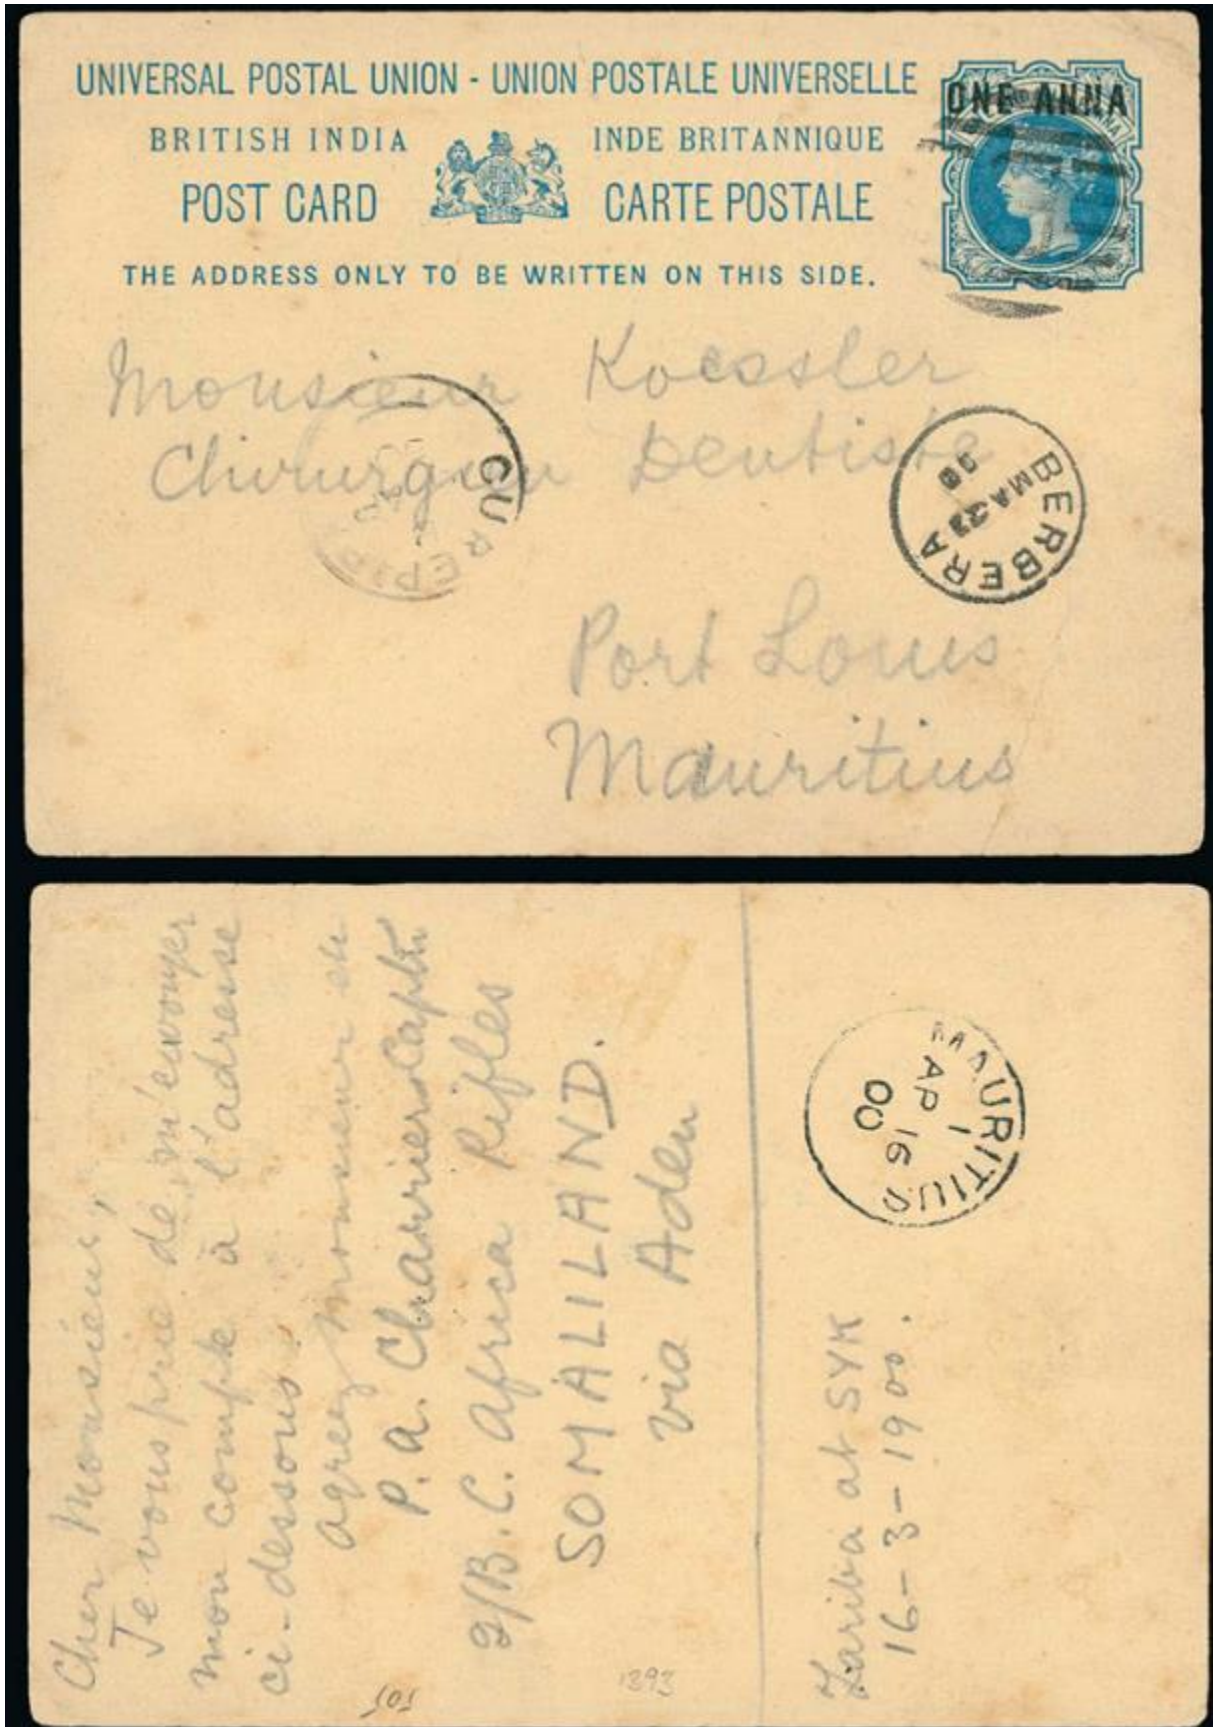 UNIVERSAL POSTAL UNION - UNION POSTALE UNIVERSELLE
BRITISH INDIA INDE BRITANNIQUE
POST CARD CARTE POSTALE
THE ADDRESS ONLY TO BE WRITTEN ON THIS SIDE.
ONE ANNA
Monsieur Koessler
Chirurgien Dentiste
Port Louis
Mauritius
CUREPIP
BERBERA
MA
Cher Monsieur,
Je vous prie de m'envoyer
mon compte à l'adresse
ci-dessous.
agréez monsieur etc
P. A. Charrier Captn
2/B. C. Africa Rifles
SOMALILAND.
via Aden
MAURITIUS
1
AP 16
00
Zariba at SYK
16-3-1900.
1893